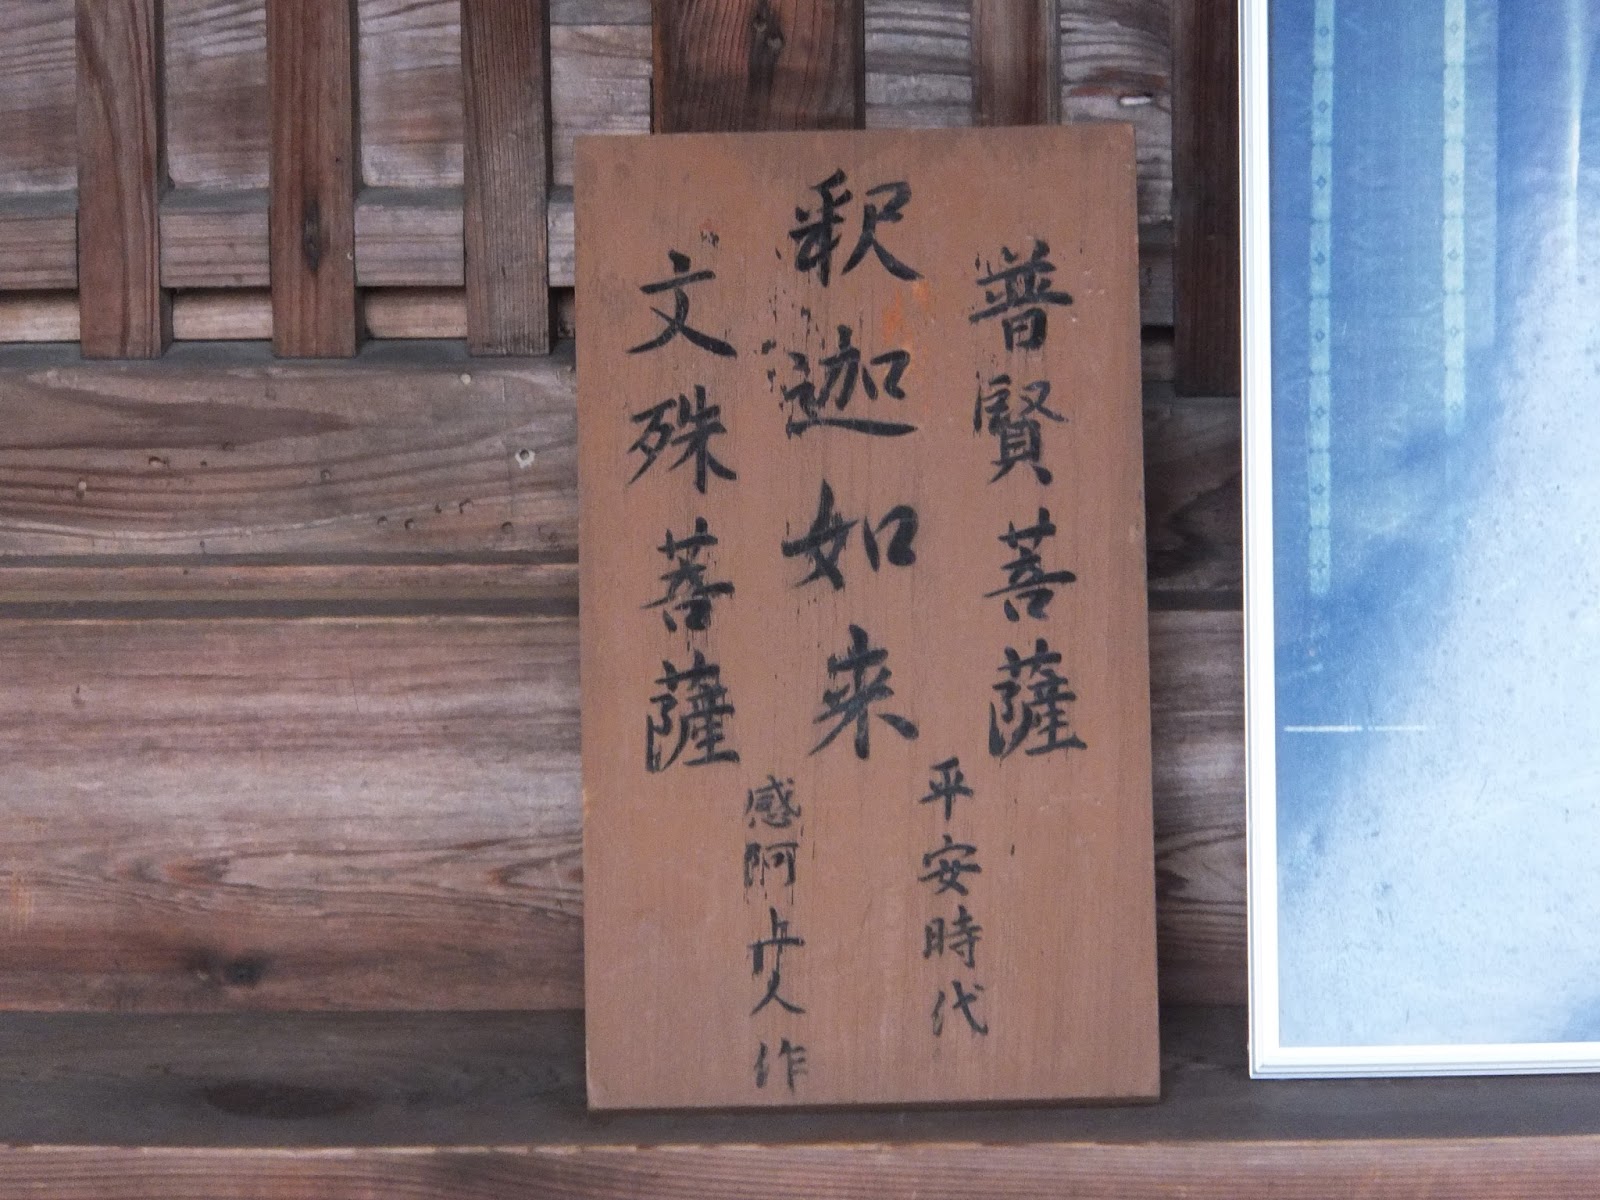 普賢菩薩
平安時代
釈迦如来
感阿人作
文殊菩薩